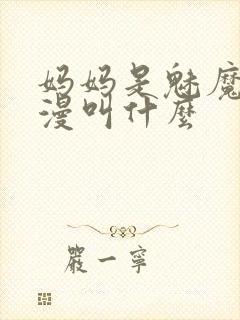 妈妈是魅魔
漫叫什麼
嚴一寧